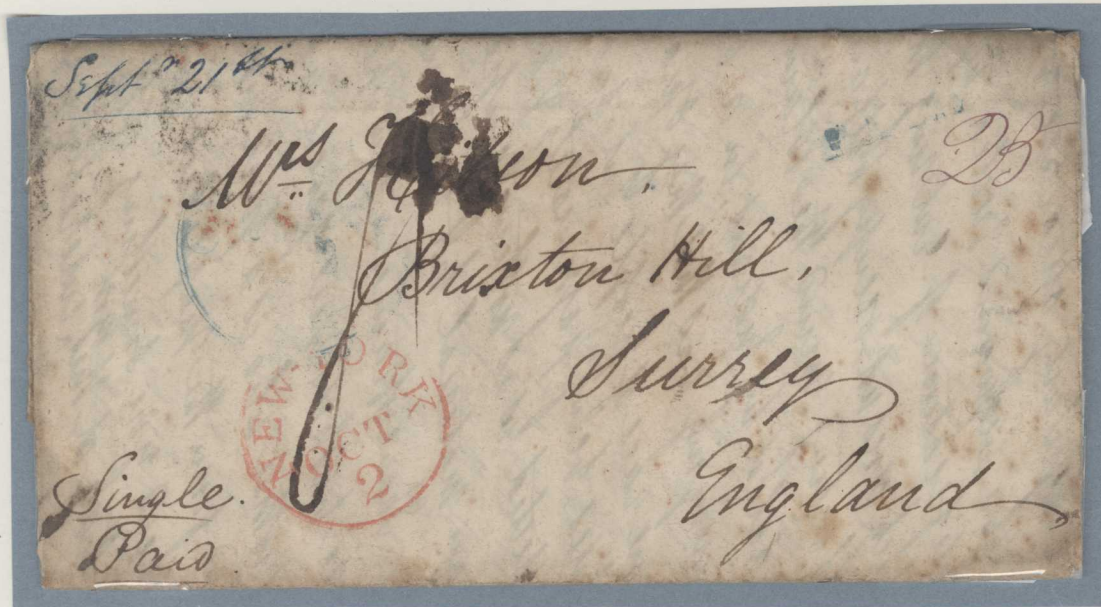 Septr 21st
25
Mrs
Brixton Hill,
Surrey
England
NEW-YORK
OCT
2
Single.
Paid.